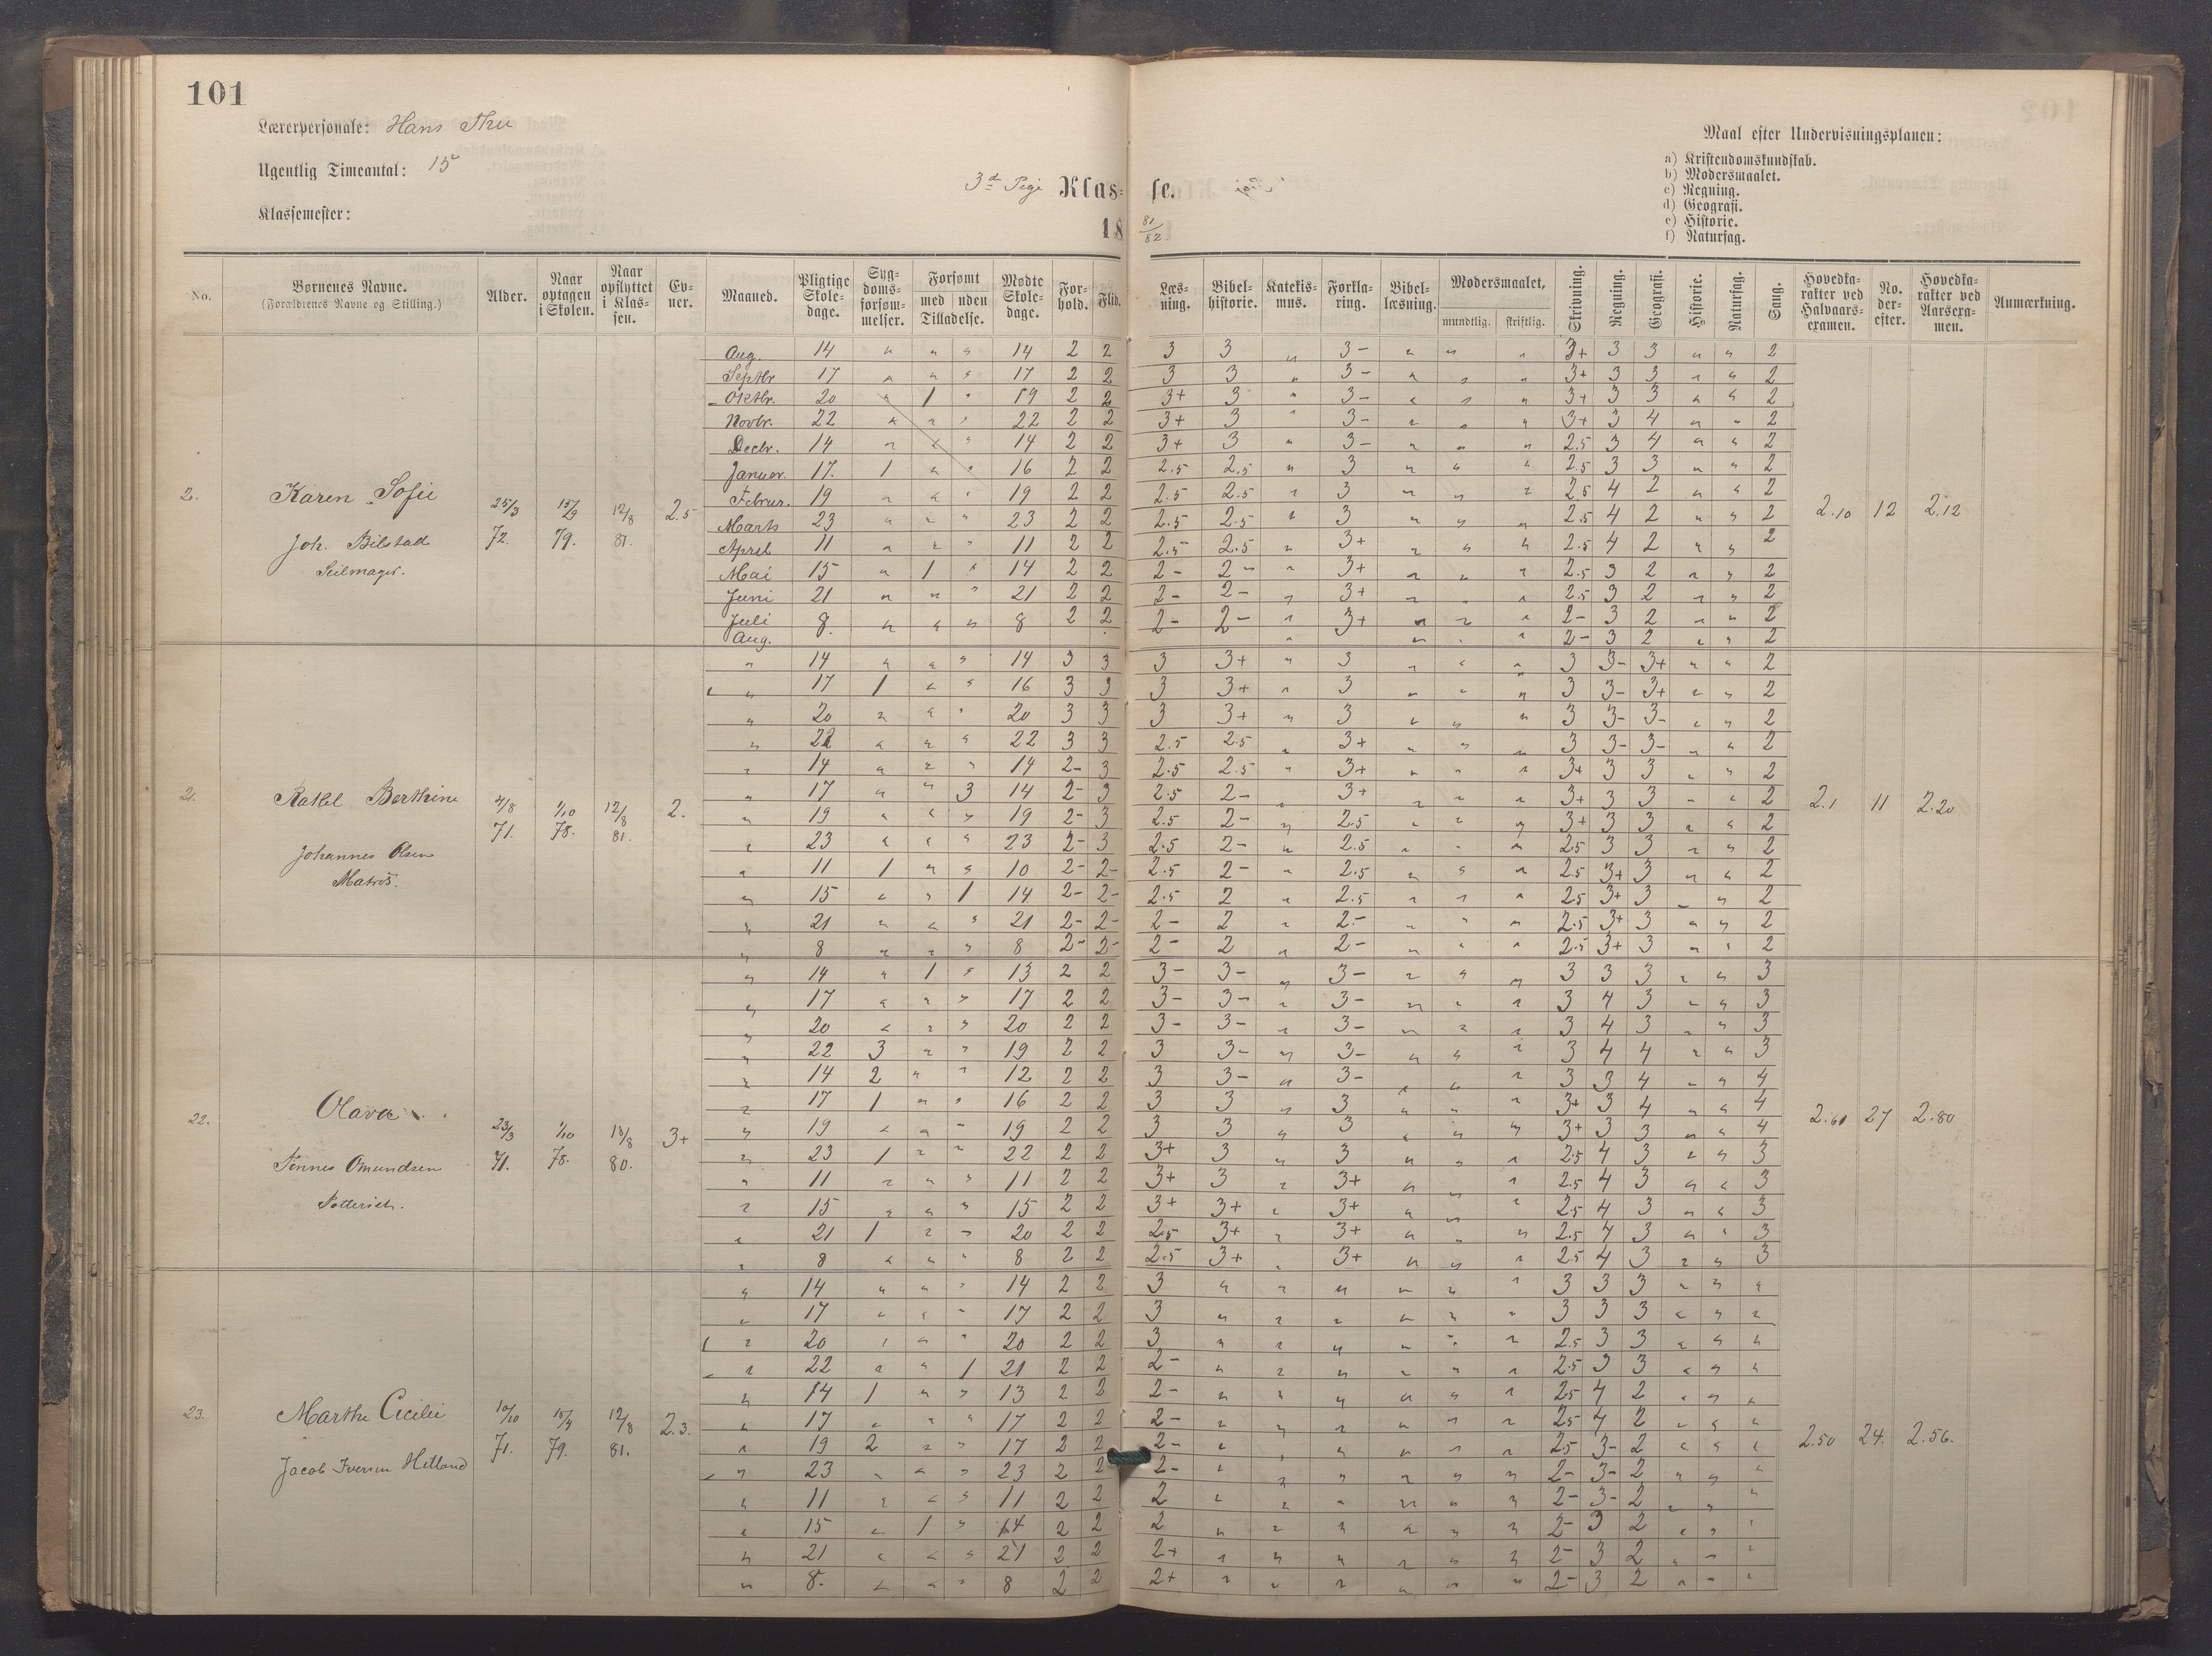 101
Lærerpersonale: Hans Thu
Ugentlig Timeantal: 15
Klassemester:
3de Pige Klas-
se.
18
81/82
Maal efter Undervisningsplanen:
a) Kristendomskundskab.
b) Modersmaalet.
c) Regning.
d) Geografi.
e) Historie.
f) Naturfag.
No. Børnenes Navne. (Forældrenes Navne og Stilling.) Alder. Naar optagen i Skolen. Naar opflyttet i Klassen. Evner. Maaned. Pligtige Skoledage. Sygdomsforsømmelser. Forsømt med uden Tilladelse. Mødte Skoledage. Forhold. Flid. Læsning. Bibelhistorie. Katekismus. Forklaring. Bibellæsning. Modersmaalet, mundtlig. skriftlig. Skrivning. Regning. Geografi. Historie. Naturfag. Sang. Hovedkarakter ved Halvaarsexamen. No. derefter. Hovedkarakter ved Aarsexamen. Anmærkning.
Karen Sofie
Joh. Bilstad
Seilmager.
25/3 72. 15/9 79. 12/8 81. 2.5
Aug. 14 " " " 14 2 2 3 3 " 3- " " " 3+ 3 3 " " 2
Septbr 17 " " " 17 2 2 3 3 " 3- " " " 3+ 3 3 " " 2
Oktbr. 20 " 1 " 19 2 2 3+ 3 " 3- " " " 3+ 3 3 " " 2
Novbr. 22 " " " 22 2 2 3+ 3 " 3- " " " 3+ 3 4 " " 2
Decbr. 14 " " " 14 2 2 3+ 3 " 3- " " " 2.5 3 4 " " 2
Januar. 17. 1 " " 16 2 2 2.5 2.5 " 3 " " " 2.5 3 3 " " 2
Februar. 19 " " " 19 2 2 2.5 2.5 " 3 " " " 2.5 4 2 " " 2
Marts 23 " " " 23 2 2 2.5 2.5 " 3 " " " 2.5 4 2 " " 2
April 11 " " " 11 2 2 2.5 2.5 " 3+ " " " 2.5 4 2 " " 2
Mai 15 " 1 " 14 2 2 2- 2- " 3+ " " " 2.5 3 2 " " 2
Juni 21 " " " 21 2 2 2- 2- " 3+ " " " 2.5 3 2 " " 2
Juli 8. " " " 8 2 2 2- 2- " 3+ " " " 2- 3 2 " " 2
Aug. " " " " 2- 3 2 " " 2
2.10 12 2.12
Rakel Berthine
Johannes Olsen
Matros.
4/8 71. 1/10 78. 12/8 81. 2.
" 14 " " " 14 3 3 3 3+ " 3 " " " 3 3- 3+ " " 2
" 17 1 " " 16 3 3 3 3+ " 3 " " " 3 3- 3+ " " 2
" 20 " " " 20 3 3 3 3+ " 3 " " " 3 3- 3- " " 2
" 22 " " " 22 3 3 2.5 2.5 " 3+ " " " 3 3- 3- " " 2
" 14 " " " 14 2- 3 2.5 2.5 " 3+ " " " 3+ 3 3 " " 2
" 17 " " 3 14 2- 3 2.5 2- " 3+ " " " 3+ 3 3 " " 2
" 19 " " " 19 2- 3 2.5 2- " 2.5 " " " 3+ 3 3 " " 2
" 23 " " " 23 2- 3 2.5 2- " 2.5 " " " 2.5 3 3 " " 2
" 11 1 " " 10 2- 2- 2.5 2- " 2.5 " " " 2.5 3+ 3 " " 2
" 15 " " 1 14 2- 2- 2.5 2 " 2.5 " " " 2.5 3+ 3 " " 2
" 21 " " " 21 2- 2- 2- 2 " 2- " " " 2.5 3+ 3 " " 2
" 8 " " " 8 2- 2- 2- 2 " 2- " " " 2.5 3+ 3 " " 2
2.1 11 2.20
22.
Olava
Tønnes Omundsen
23/3 71. 1/10 78. 13/8 80. 3+
" 14 " 1 " 13 2 2 3- 3- " 3- " " " 3 3 3 " " 3
" 17 " " " 17 2 2 3- 3- " 3- " " " 3 4 3 " " 3
" 20 " " " 20 2 2 3- 3- " 3- " " " 3 4 3 " " 3
" 22 3 " " 19 2 2 3 3- " 3- " " " 3 4 4 " " 3
" 14 2 " " 12 2 2 3 3- " 3- " " " 3 3 4 " " 4
" 17 1 " " 16 2 2 3 3 " 3 " " " 3+ 3 4 " " 4
" 19 " " " 19 2 2 3 3 " 3 " " " 3+ 3 3 " " 4
" 23 1 " " 22 2 2 3+ 3 " 3 " " " 2.5 4 3 " " 3
" 11 " " " 11 2 2 3+ 3 " 3+ " " " 2.5 4 3 " " 3
" 15 " " " 15 2 2 3+ 3+ " 3+ " " " 2.5 4 3 " " 3
" 21 1 " " 20 2 2 2.5 3+ " 3+ " " " 2.5 4 3 " " 3
" 8 " " " 8 2 2 2.5 3+ " 3+ " " " 2.5 4 3 " " 3
2.60 27 2.80
23.
Marthe Cecilie
Jacob Iversen Hetland
10/10 71. 15/4 79. 12/8 81. 2.3.
" 14 " " " 14 2 2 3 " " " " " " 3 3 3 " " "
" 17 " " " 17 2 2 3 " " " " " " 3 3 3 " " "
" 20 " " " 20 2 2 3 " " " " " " 2.5 3 3 " " "
" 22 " " 1 21 2 2 2- " " " " " " 2.5 3 3 " " "
" 14 1 " " 13 2 2 2- " " " " " " 2.5 4 2 " " "
" 17 " " " 17 2 2 2- " " " " " " 2.5 4 2 " " "
" 19 2 " " 17 2 2 2- " " " " " " 2.5 3- 2 " " "
" 23 " " " 23 2 2 2- " " " " " " 2- 3- 2 " " "
" 11 " " " 11 2 2 2 " " " " " " 2- 3- 2 " " "
" 15 " 1 " 14 2 2 2 " " " " " " 2- 3 2 " " "
" 21 " " " 21 2 2 2+ " " " " " " 2- 3 2 " " "
" 8. " " " 8 2 2 2+ " " " " " " 2- 3 2 " " "
2.50 24. 2.56.